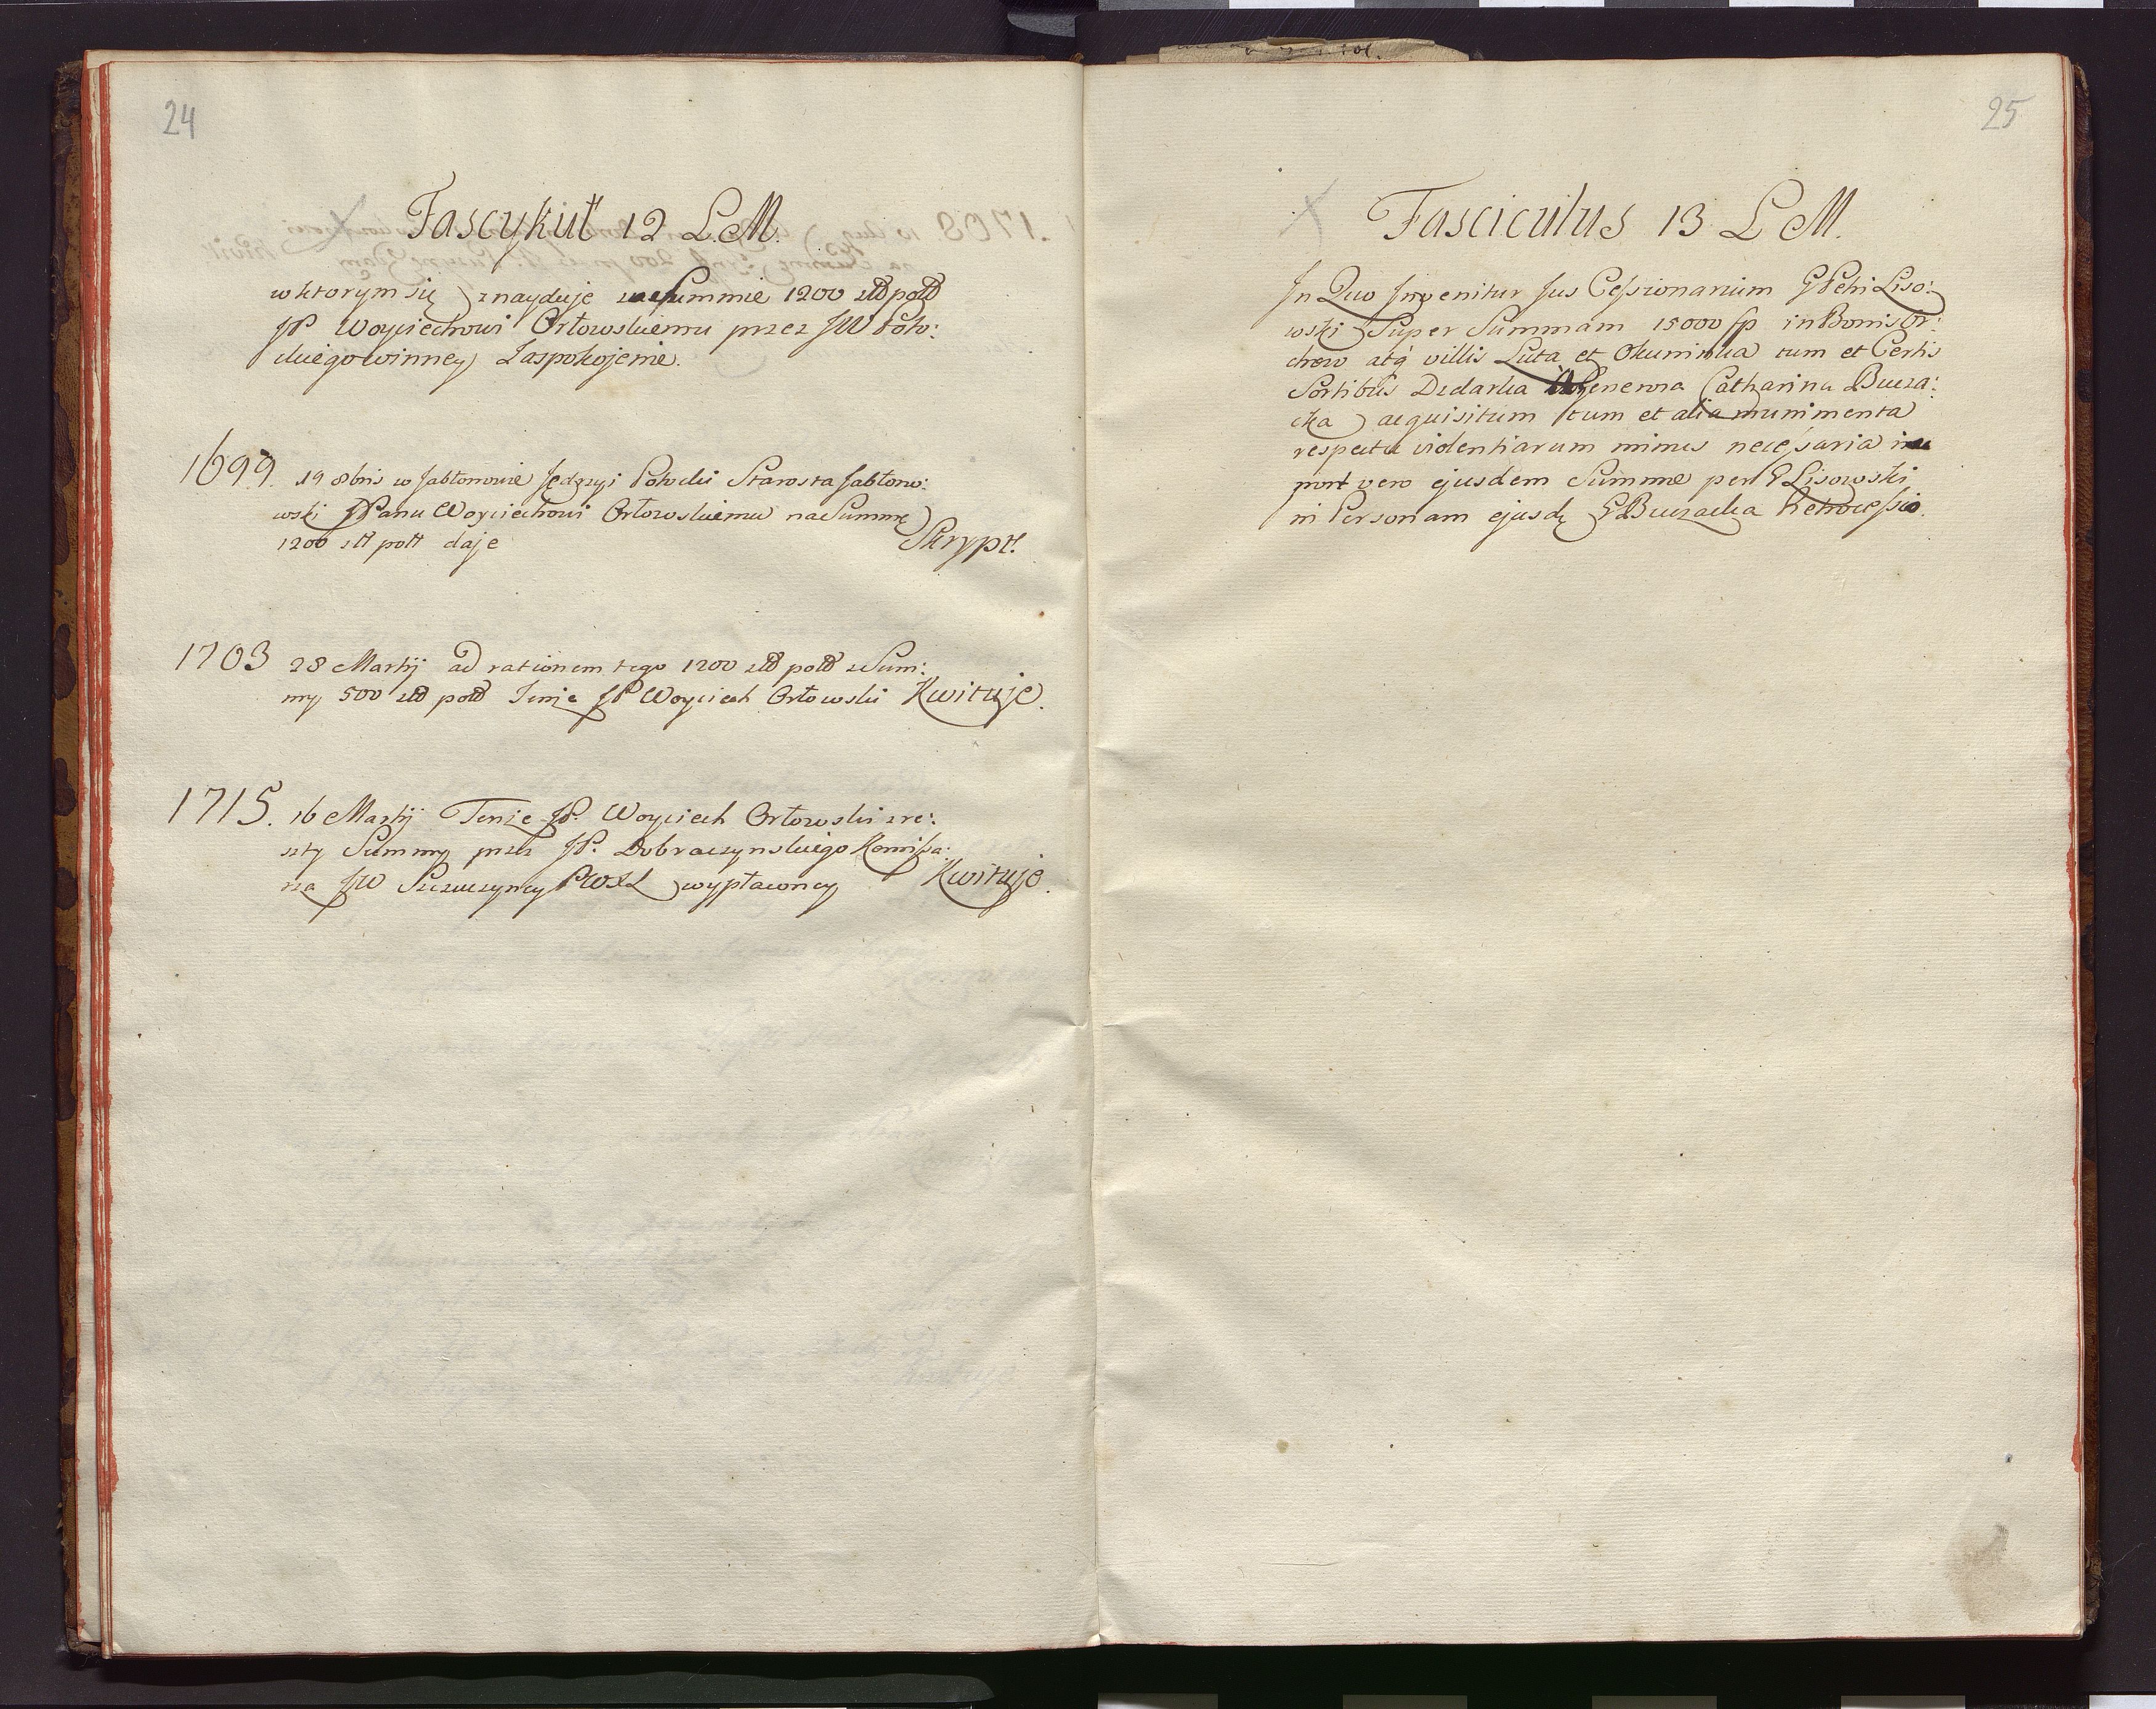 24
Fascykuł 12 L.M.
w ktorym się znayduje w Summie 1200 złł poll
JP Woyciechowi Orłowskiemu przez JW Poto:
ckiego winney Zaspokojenie.
1699. 19 8bris w Jabłonowie Jędrzyi Potocki Starosta Jabłono:
wski JPanu Woyciechowi Orłowskiemu na Summę
1200 złł poll daje Skrypt.
1703 28 Martij ad rationem tego 1200 złł poll z Sum:
my 500 złł poll Tenże JP Woyciech Orłowski Kwituje.
1715. 16 Martij Tenże JP. Woyciech Orłowski z re:
szty Summy przez JP. Dobraczynskiego Komissa:
rza JW wypłaconey Kwituje.
25
Fasciculus 13 L M.
In Quo Invenitur Jus Cessionarium G Petri Liso:
wski Super Summam 15000 fp in Bonis Or:
chow atq villis Luta et Okuninka tum et Certis
Sortibus Dedarka Generosa Catharina Bucza:
cka acquisitum tum et alia munimenta
respectu violentiarum minus necessaria
post vero ejusdem Summe per G Lisowski
in Personam ejusdę G Buczacka Retrocessio.